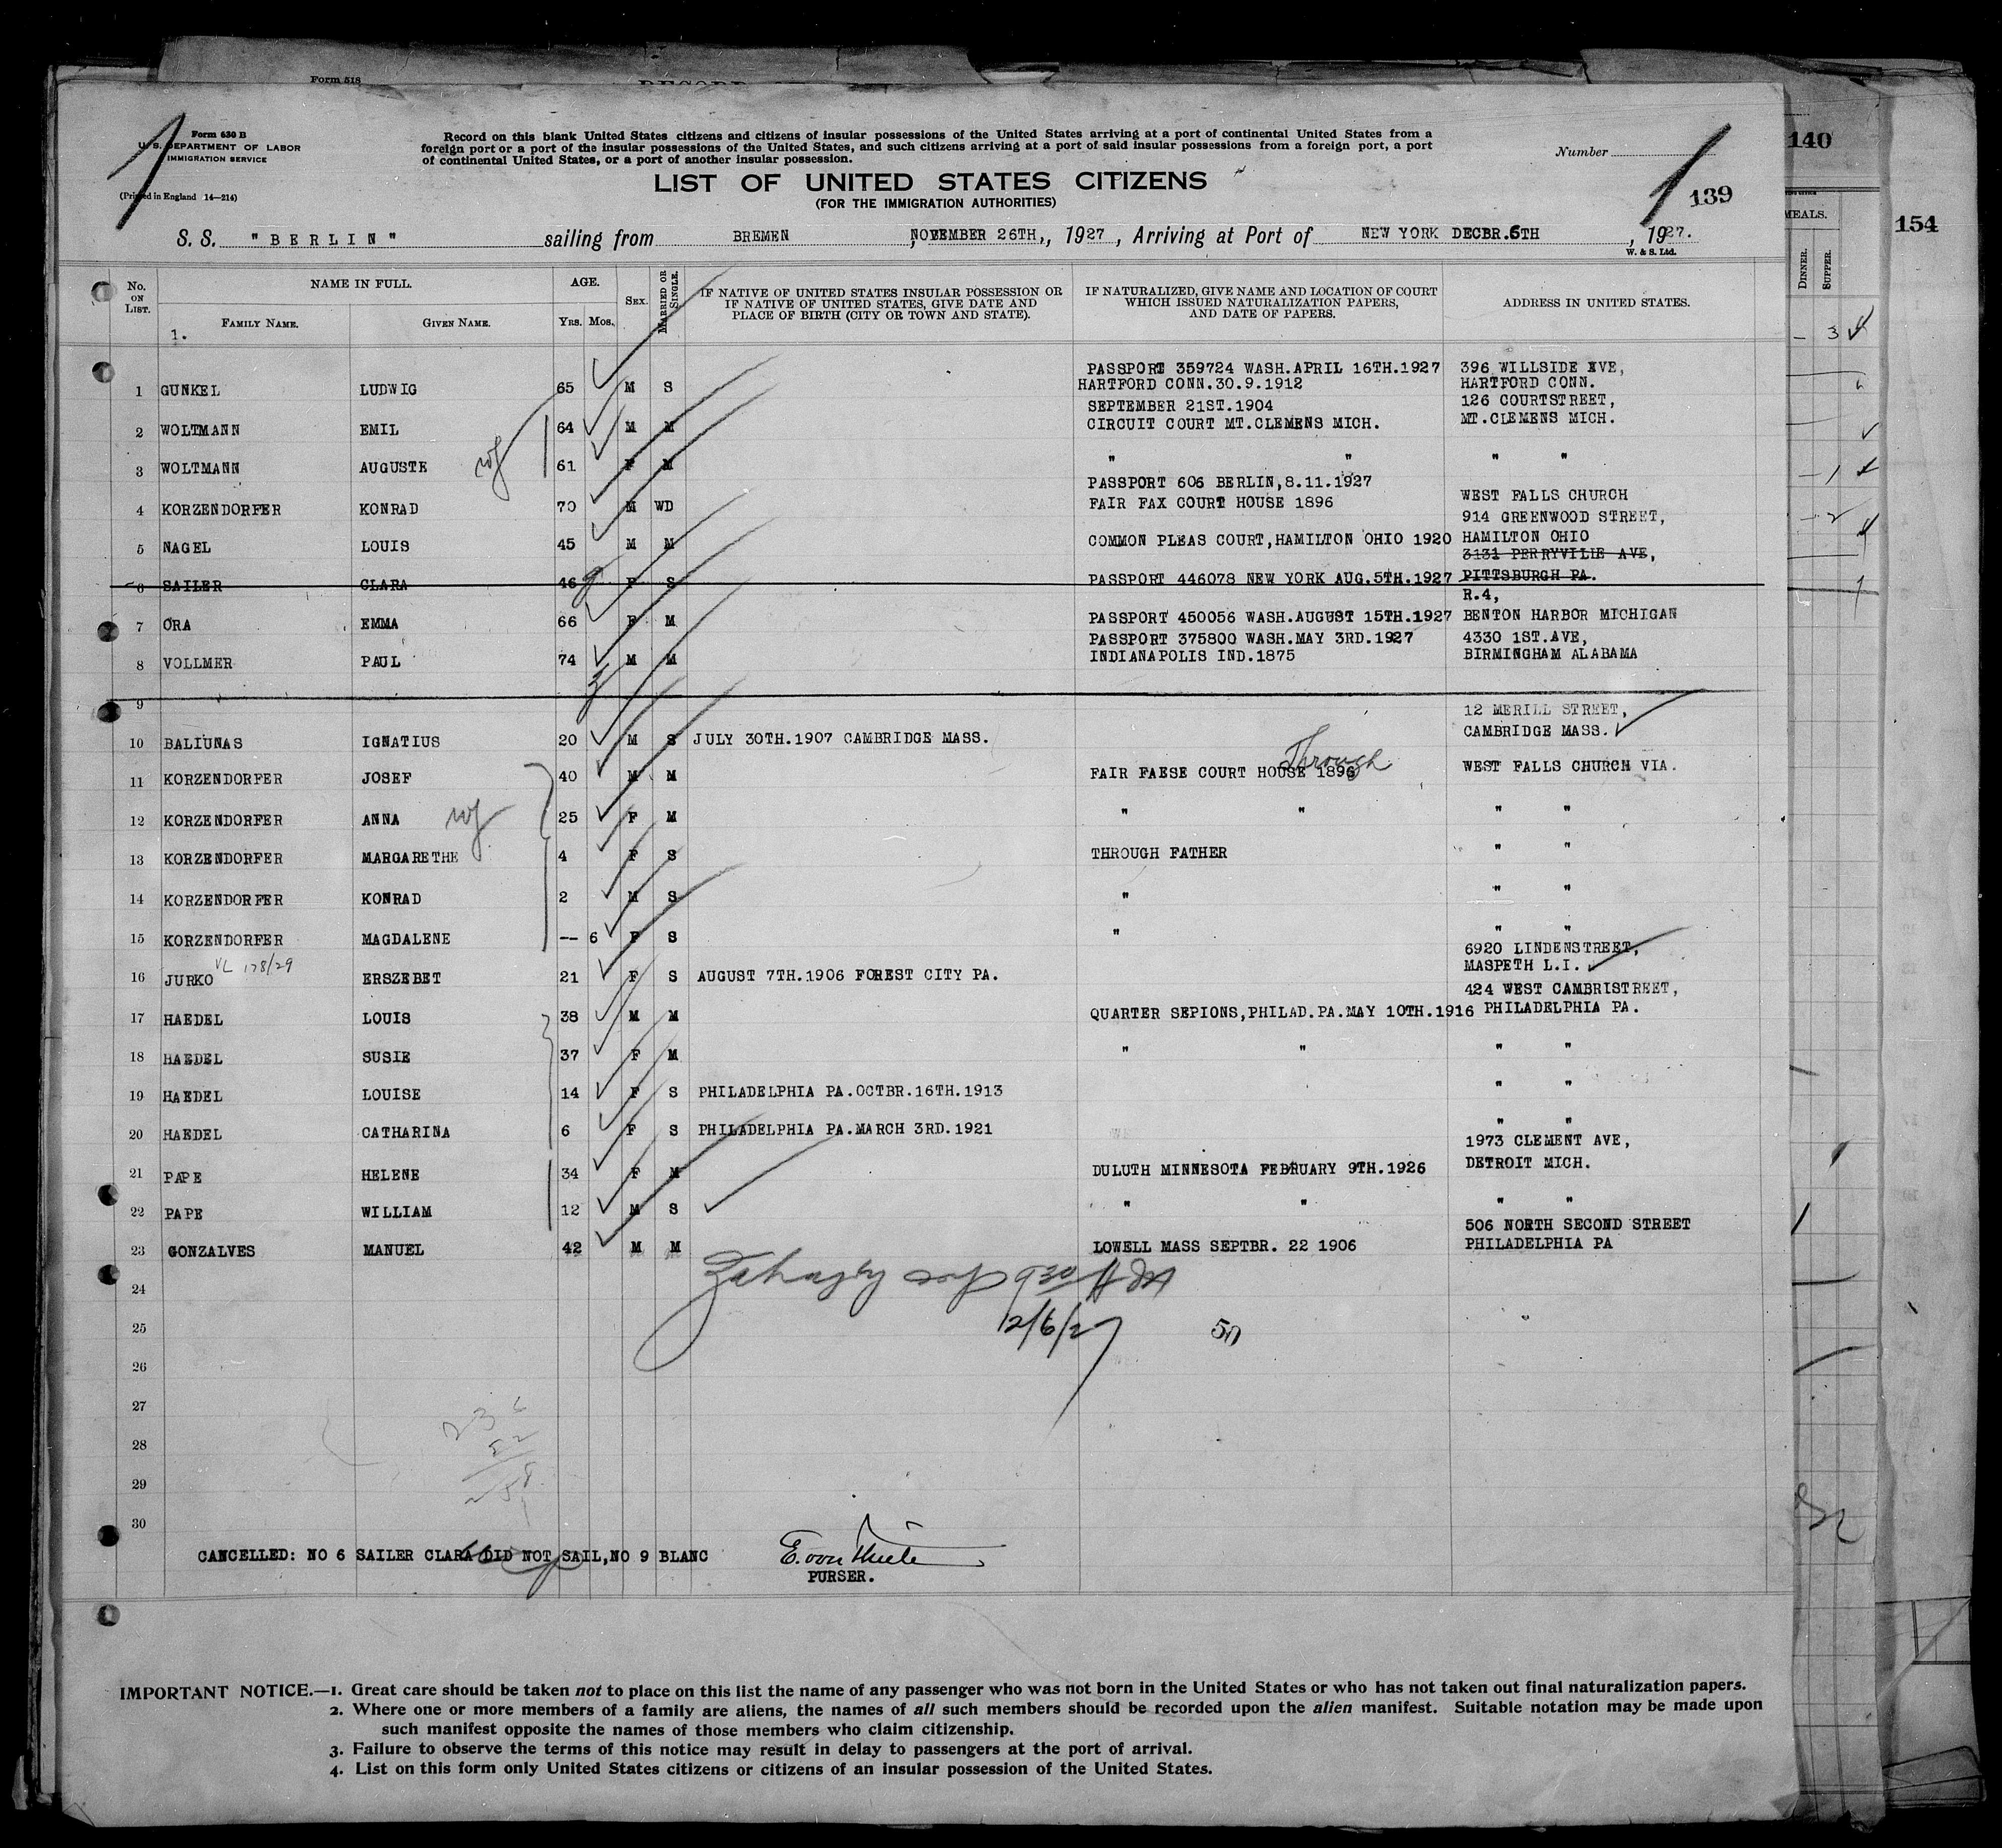 Form 518
Form 630 B
U. S. DEPARTMENT OF LABOR
IMMIGRATION SERVICE
(Printed in England 14—214)
Record on this blank United States citizens and citizens of insular possessions of the United States arriving at a port of continental United States from a
foreign port or a port of the insular possessions of the United States, and such citizens arriving at a port of said insular possessions from a foreign port, a port
of continental United States, or a port of another insular possession.
Number
LIST OF UNITED STATES CITIZENS
(FOR THE IMMIGRATION AUTHORITIES)
139
140
154
S. S. "BERLIN" sailing from BREMEN NOVEMBER 26TH,, 1927, Arriving at Port of NEW YORK DECBR.6TH, 1927.
W. & S. Ltd.
No. ON LIST. NAME IN FULL. AGE. SEX. MARRIED OR SINGLE. IF NATIVE OF UNITED STATES INSULAR POSSESSION OR IF NATIVE OF UNITED STATES, GIVE DATE AND PLACE OF BIRTH (CITY OR TOWN AND STATE). IF NATURALIZED, GIVE NAME AND LOCATION OF COURT WHICH ISSUED NATURALIZATION PAPERS, AND DATE OF PAPERS. ADDRESS IN UNITED STATES.
FAMILY NAME. GIVEN NAME. YRS. MOS.
1.
MEALS.
DINNER. SUPPER.
PASSPORT 359724 WASH.APRIL 16TH.1927 396 WILLSIDE AVE,
1 GUNKEL LUDWIG 65 M S HARTFORD CONN.30.9.1912 HARTFORD CONN.
SEPTEMBER 21ST.1904 126 COURTSTREET,
2 WOLTMANN EMIL 64 M M CIRCUIT COURT MT.CLEMENS MICH. MT.CLEMENS MICH.
3 WOLTMANN AUGUSTE 61 F M " " " "
PASSPORT 606 BERLIN,8.11.1927
4 KORZENDORFER KONRAD 70 M WD FAIR FAX COURT HOUSE 1896 WEST FALLS CHURCH
914 GREENWOOD STREET,
5 NAGEL LOUIS 45 M M COMMON PLEAS COURT,HAMILTON OHIO 1920 HAMILTON OHIO
3131 PERRYVILIE AVE,
6 SAILER CLARA 46 F S PASSPORT 446078 NEW YORK AUG.5TH.1927 PITTSBURGH PA.
R.4,
7 ORA EMMA 66 F M PASSPORT 450056 WASH.AUGUST 15TH.1927 BENTON HARBOR MICHIGAN
PASSPORT 375800 WASH.MAY 3RD.1927 4330 1ST.AVE,
8 VOLLMER PAUL 74 M M INDIANAPOLIS IND.1875 BIRMINGHAM ALABAMA
9
12 MERILL STREET,
10 BALIUNAS IGNATIUS 20 M S JULY 30TH.1907 CAMBRIDGE MASS. CAMBRIDGE MASS.
Through
11 KORZENDORFER JOSEF 40 M M FAIR FAESE COURT HOUSE 1896 WEST FALLS CHURCH VIA.
12 KORZENDORFER ANNA 25 F M " " " "
13 KORZENDORFER MARGARETHE 4 F S THROUGH FATHER " "
14 KORZENDORFER KONRAD 2 M S " " "
15 KORZENDORFER MAGDALENE -- 6 F S " " "
VL 178/29 6920 LINDENSTREET,
16 JURKO ERSZEBET 21 F S AUGUST 7TH.1906 FOREST CITY PA. MASPETH L.I.
424 WEST CAMBRISTREET,
17 HAEDEL LOUIS 38 M M QUARTER SEPIONS,PHILAD.PA.MAY 10TH.1916 PHILADELPHIA PA.
18 HAEDEL SUSIE 37 F M " " " "
19 HAEDEL LOUISE 14 F S PHILADELPHIA PA.OCTBR.16TH.1913 " "
20 HAEDEL CATHARINA 6 F S PHILADELPHIA PA.MARCH 3RD.1921 " "
1973 CLEMENT AVE,
21 PAPE HELENE 34 F M DULUTH MINNESOTA FEBRUARY 9TH.1926 DETROIT MICH.
22 PAPE WILLIAM 12 M S " " " "
506 NORTH SECOND STREET
23 GONZALVES MANUEL 42 M M LOWELL MASS SEPTBR. 22 1906 PHILADELPHIA PA
24
25 12/6/27 50
26
27
28
29
30
CANCELLED: NO 6 SAILER CLARA DID NOT SAIL,NO 9 BLANC
PURSER.
IMPORTANT NOTICE.—1. Great care should be taken not to place on this list the name of any passenger who was not born in the United States or who has not taken out final naturalization papers.
2. Where one or more members of a family are aliens, the names of all such members should be recorded upon the alien manifest. Suitable notation may be made upon
such manifest opposite the names of those members who claim citizenship.
3. Failure to observe the terms of this notice may result in delay to passengers at the port of arrival.
4. List on this form only United States citizens or citizens of an insular possession of the United States.